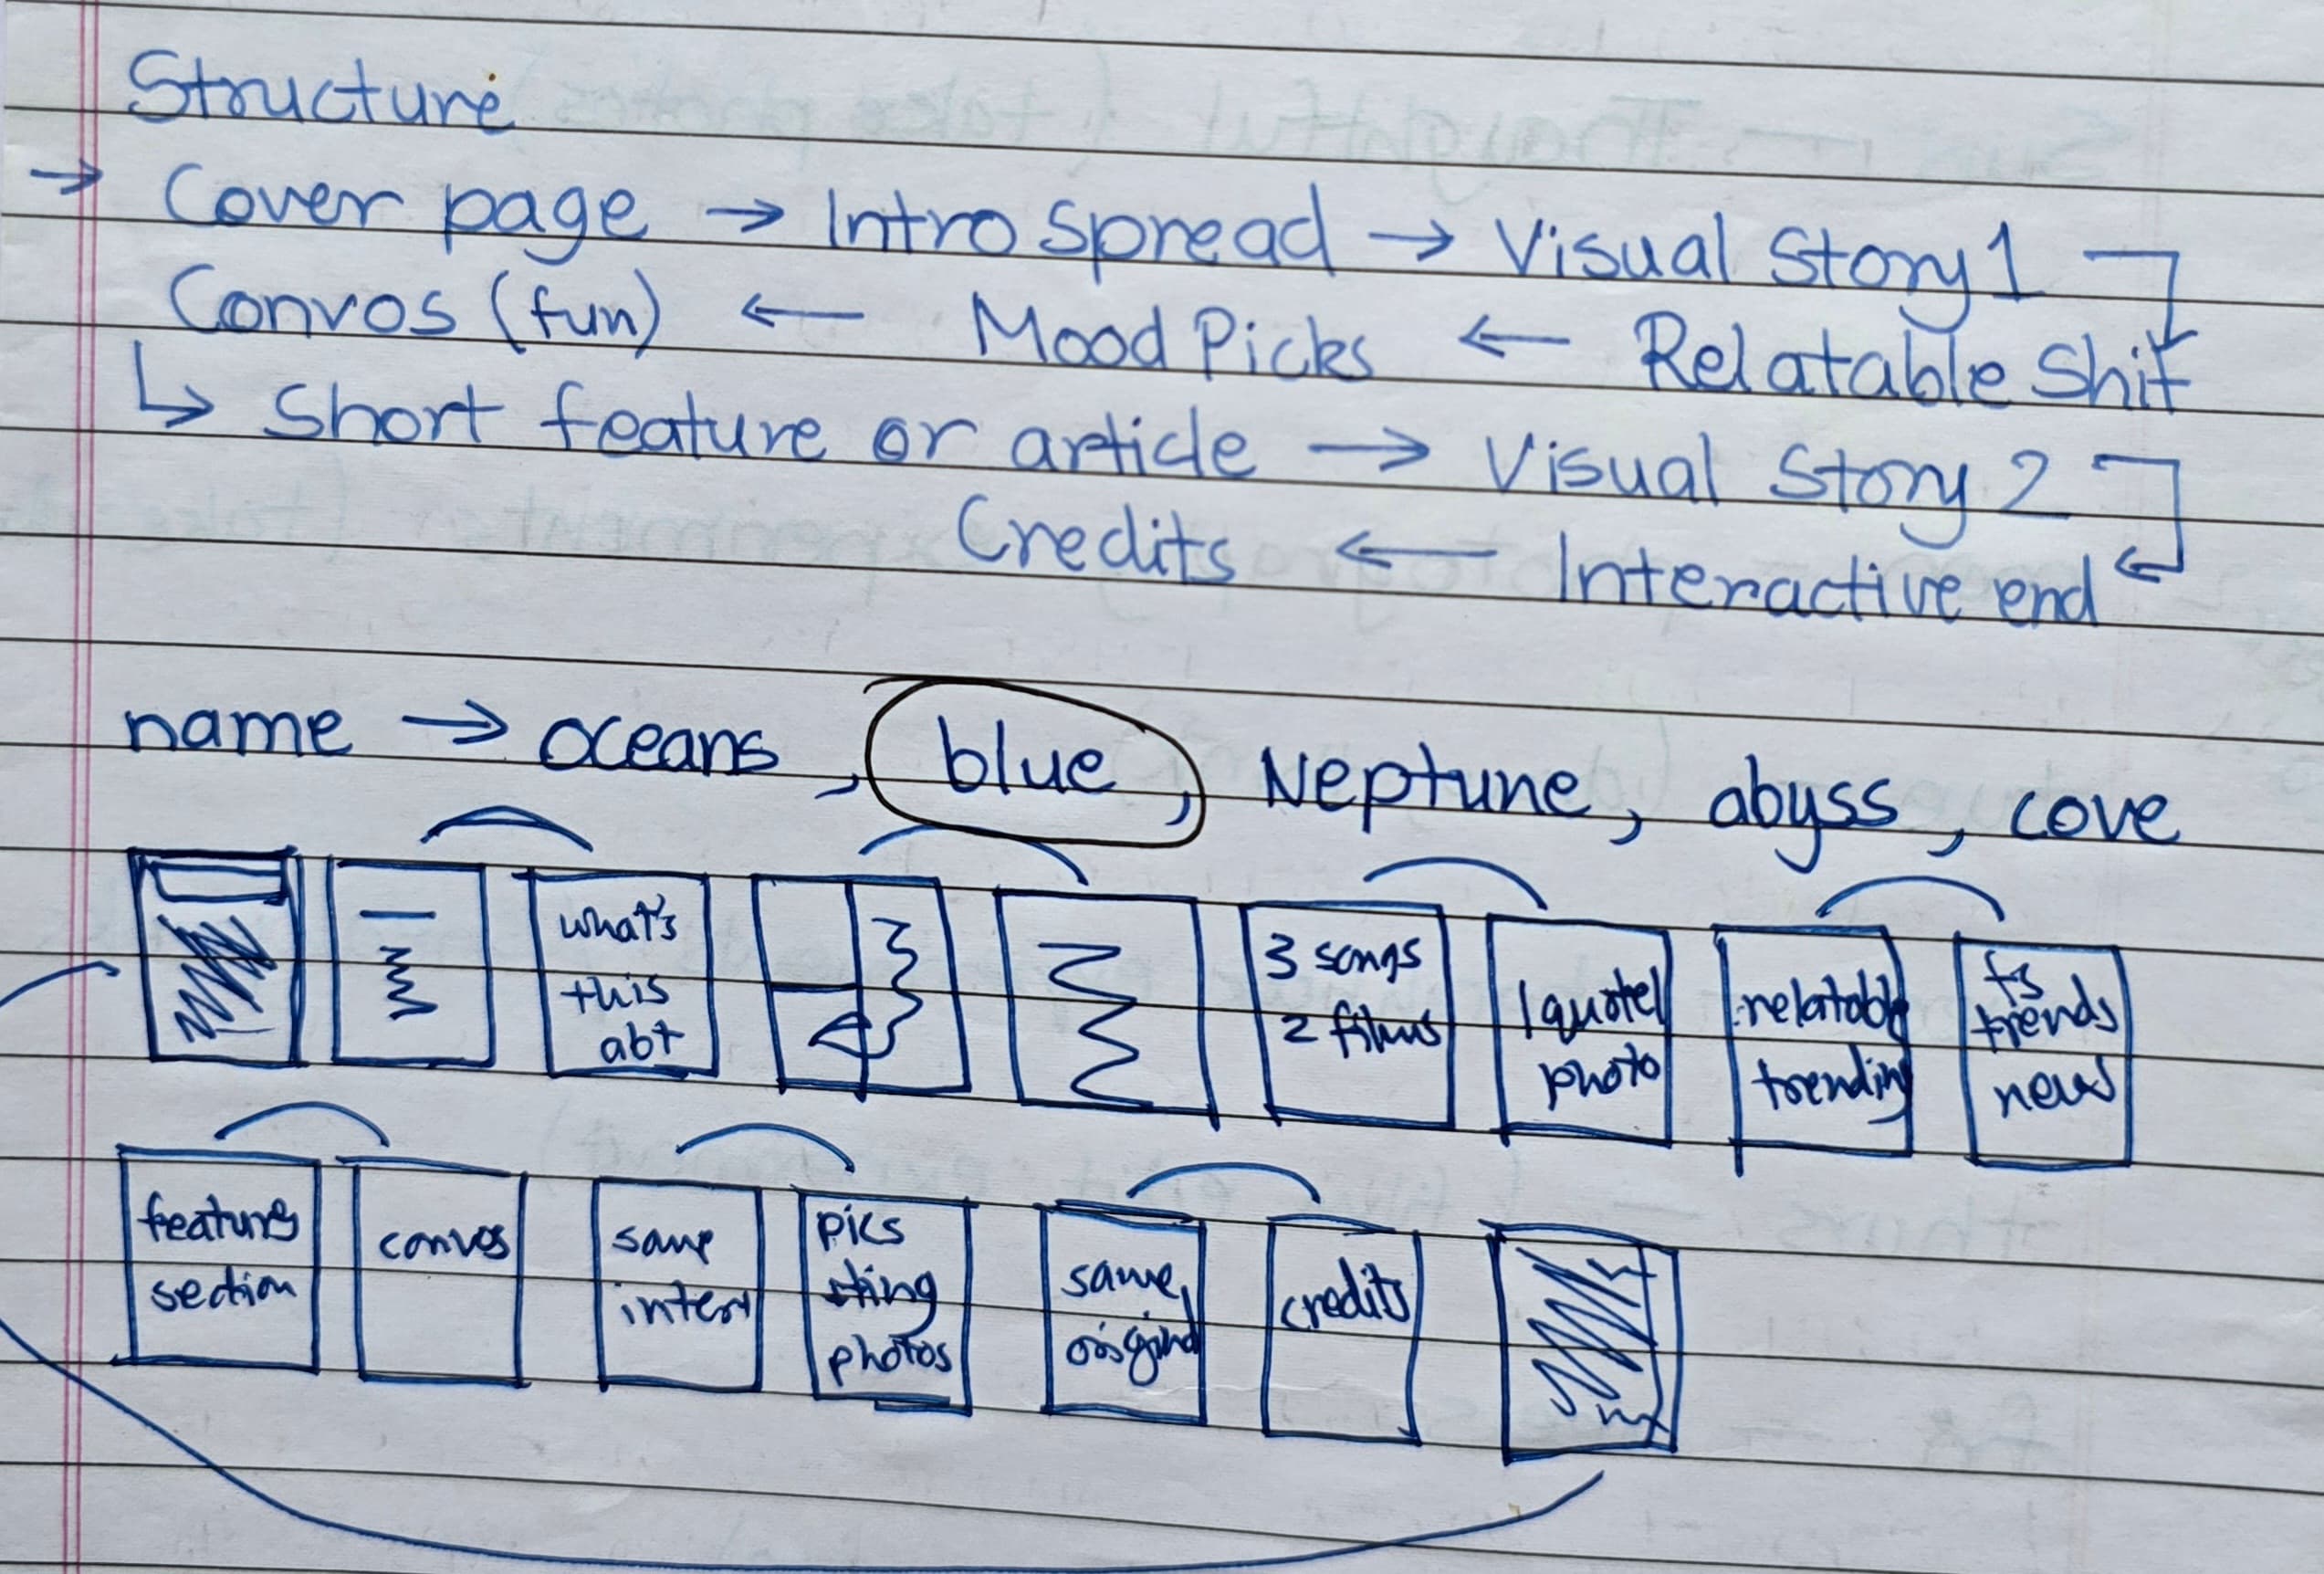 Structure
→ Cover page → Intro Spread → Visual Story 1
Convos (fun) ← Mood Picks ← Relatable Shit
↳ Short feature or article → Visual Story 2
Credits ← Interactive end
name → oceans, blue, Neptune, abyss, cove
what's
this
abt
3 songs
2 films
1 quote/
photo
relatable
trending
trends
news
feature
section
convos
same
inter
pics
photos
same
original
credits